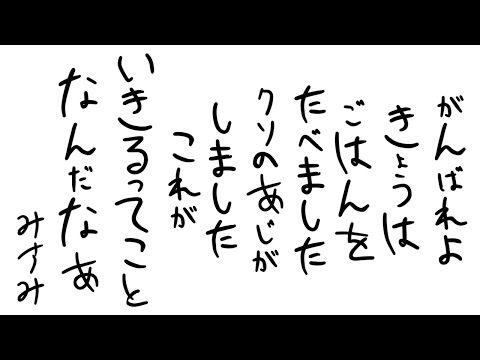 がんばれよ
きょうは
ごはんを
たべました
クソのあじが
しました
これが
いきるってこと
なんだなあ
みすみ